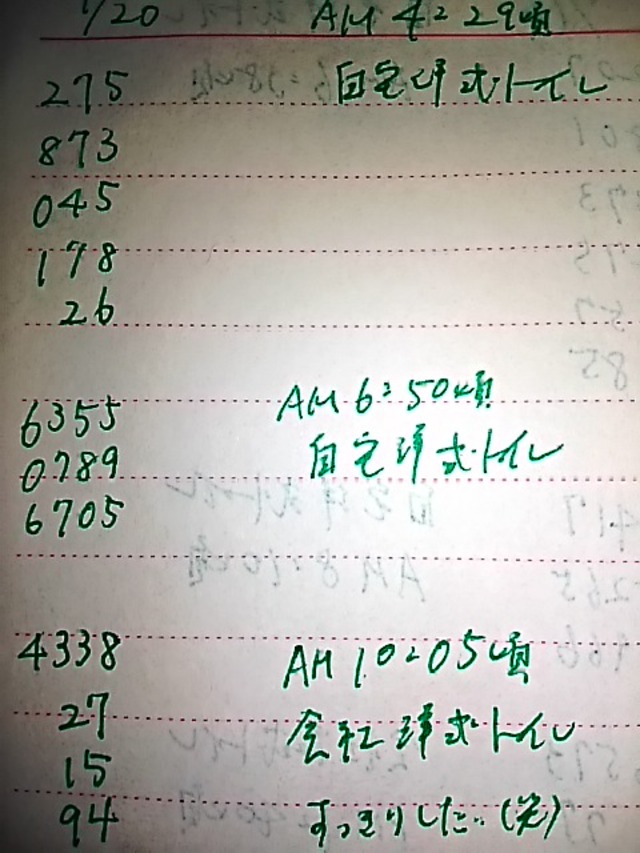 1/20 AM 4:29頃
275 自宅洋式トイレ
873
045
178
26
AM 6:50頃
6355
0789 自宅洋式トイレ
6705
4338 AM 10:05頃
27 会社洋式トイレ
15
94 すっきりした…(笑)